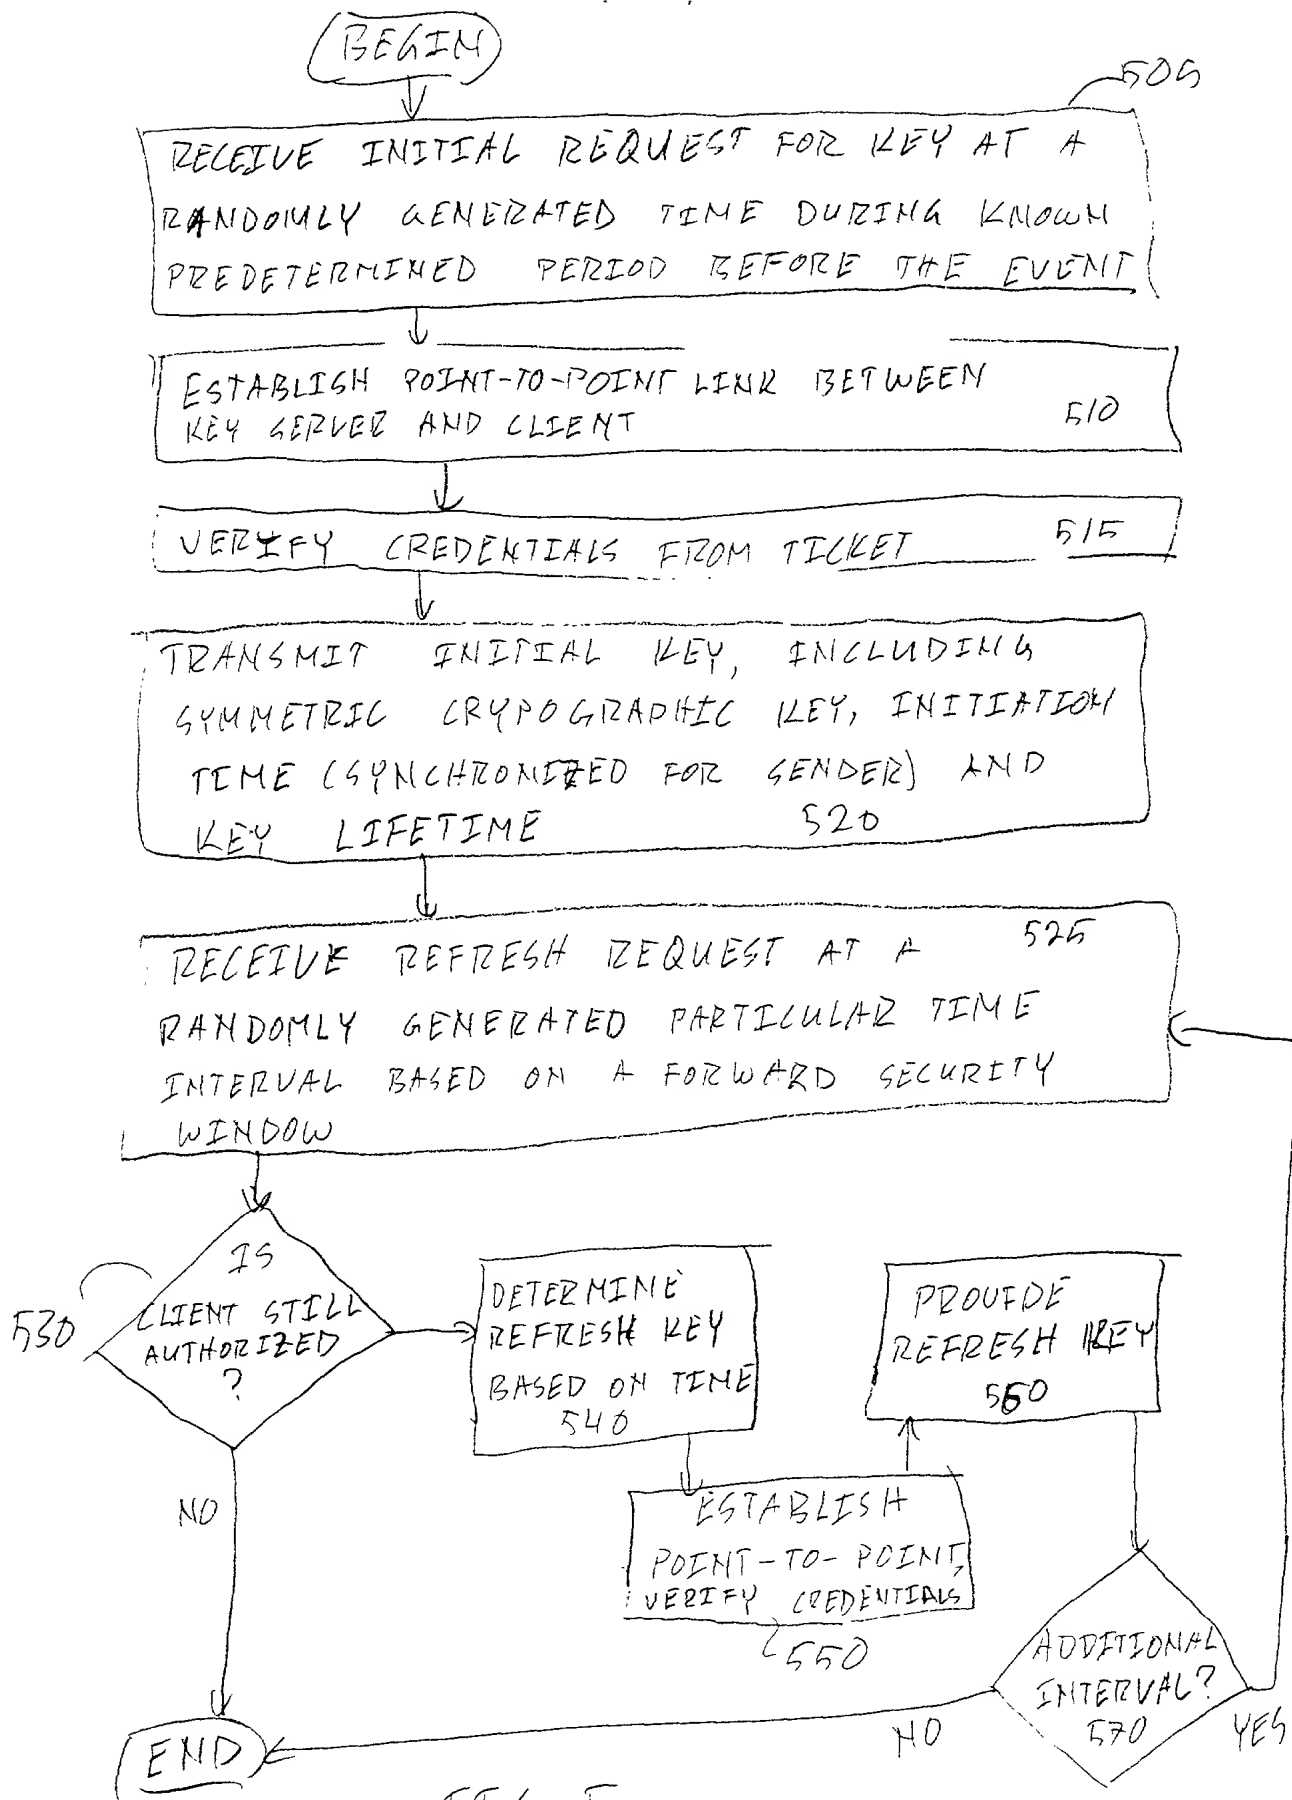 BEGIN
505
RECEIVE INITIAL REQUEST FOR KEY AT A
RANDOMLY GENERATED TIME DURING KNOWN
PREDETERMINED PERIOD BEFORE THE EVENT
ESTABLISH POINT-TO-POINT LINK BETWEEN
KEY SERVER AND CLIENT
510
VERIFY CREDENTIALS FROM TICKET
515
TRANSMIT INITIAL KEY, INCLUDING
SYMMETRIC CRYPOGRAPHIC KEY, INITIATION
TIME (SYNCHRONIZED FOR SENDER) AND
KEY LIFETIME
520
RECEIVE REFRESH REQUEST AT A
525
RANDOMLY GENERATED PARTICULAR TIME
INTERVAL BASED ON A FORWARD SECURITY
WINDOW
530
IS
CLIENT STILL
AUTHORIZED
?
DETERMINE
REFRESH KEY
BASED ON TIME
540
PROVIDE
REFRESH KEY
560
NO
ESTABLISH
POINT-TO-POINT,
VERIFY CREDENTIALS
550
ADDITIONAL
INTERVAL?
570
NO
YES
END